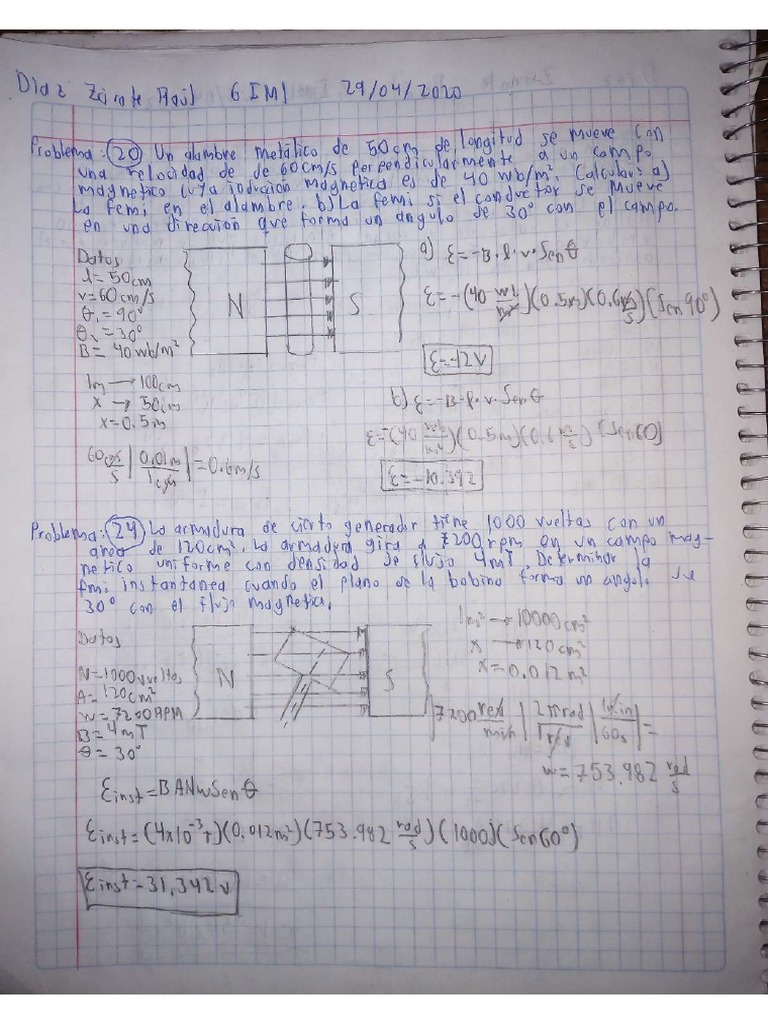 Diaz Zarate Raúl 6IM1 29/04/2020
Problema: 20 Un alambre metálico de 50cm de longitud se mueve con
una velocidad de de 60cm/s perpendicularmente a un campo
magnetico cuya inducción magnetica es de 40 wb/m². Calcular: a)
La femi en el alambre. b) La femi si el conductor se mueve
en una dirección que forma un angulo de 30° con el campo.
Datos
l=50cm
v=60cm/s
θ₁=90°
θ₂=30°
B=40wb/m²
1m → 100cm
x → 50cm
x=0.5m
60 cm/s | 0.01m/1cm | = 0.6m/s
N S
a) ε=-B·l·v·Senθ
ε=-(40 wb/m²)(0.5m)(0.6m/s)(Sen90°)
ε=-12V
b) ε=-B·l·v·Senθ
ε=-(40 wb/m²)(0.5m)(0.6m/s)(Sen60)
ε=-10.392
Problema: 24) La armadura de cierto generador tiene 1000 vueltas con un
area de 120cm². La armadura gira a 7200rpm en un campo mag-
netico uniforme con densidad de flujo 4mT. Determinar la
fmi instantanea cuando el plano de la bobina forma un angulo de
30° con el flujo magnetica.
Datos
N=1000vueltas
A=120cm²
w=7200RPM
B=4mT
θ=30°
N S
1m² → 10000cm²
x → 120cm²
x=0.012m²
7200 rev/min | 2πrad/1rev | 1min/60s | =
w=753.982 rad/s
εinst=BANwSenθ
εinst=(4x10⁻³T)(0.012m²)(753.982 rad/s)(1000)(Sen60°)
εinst=31,342v